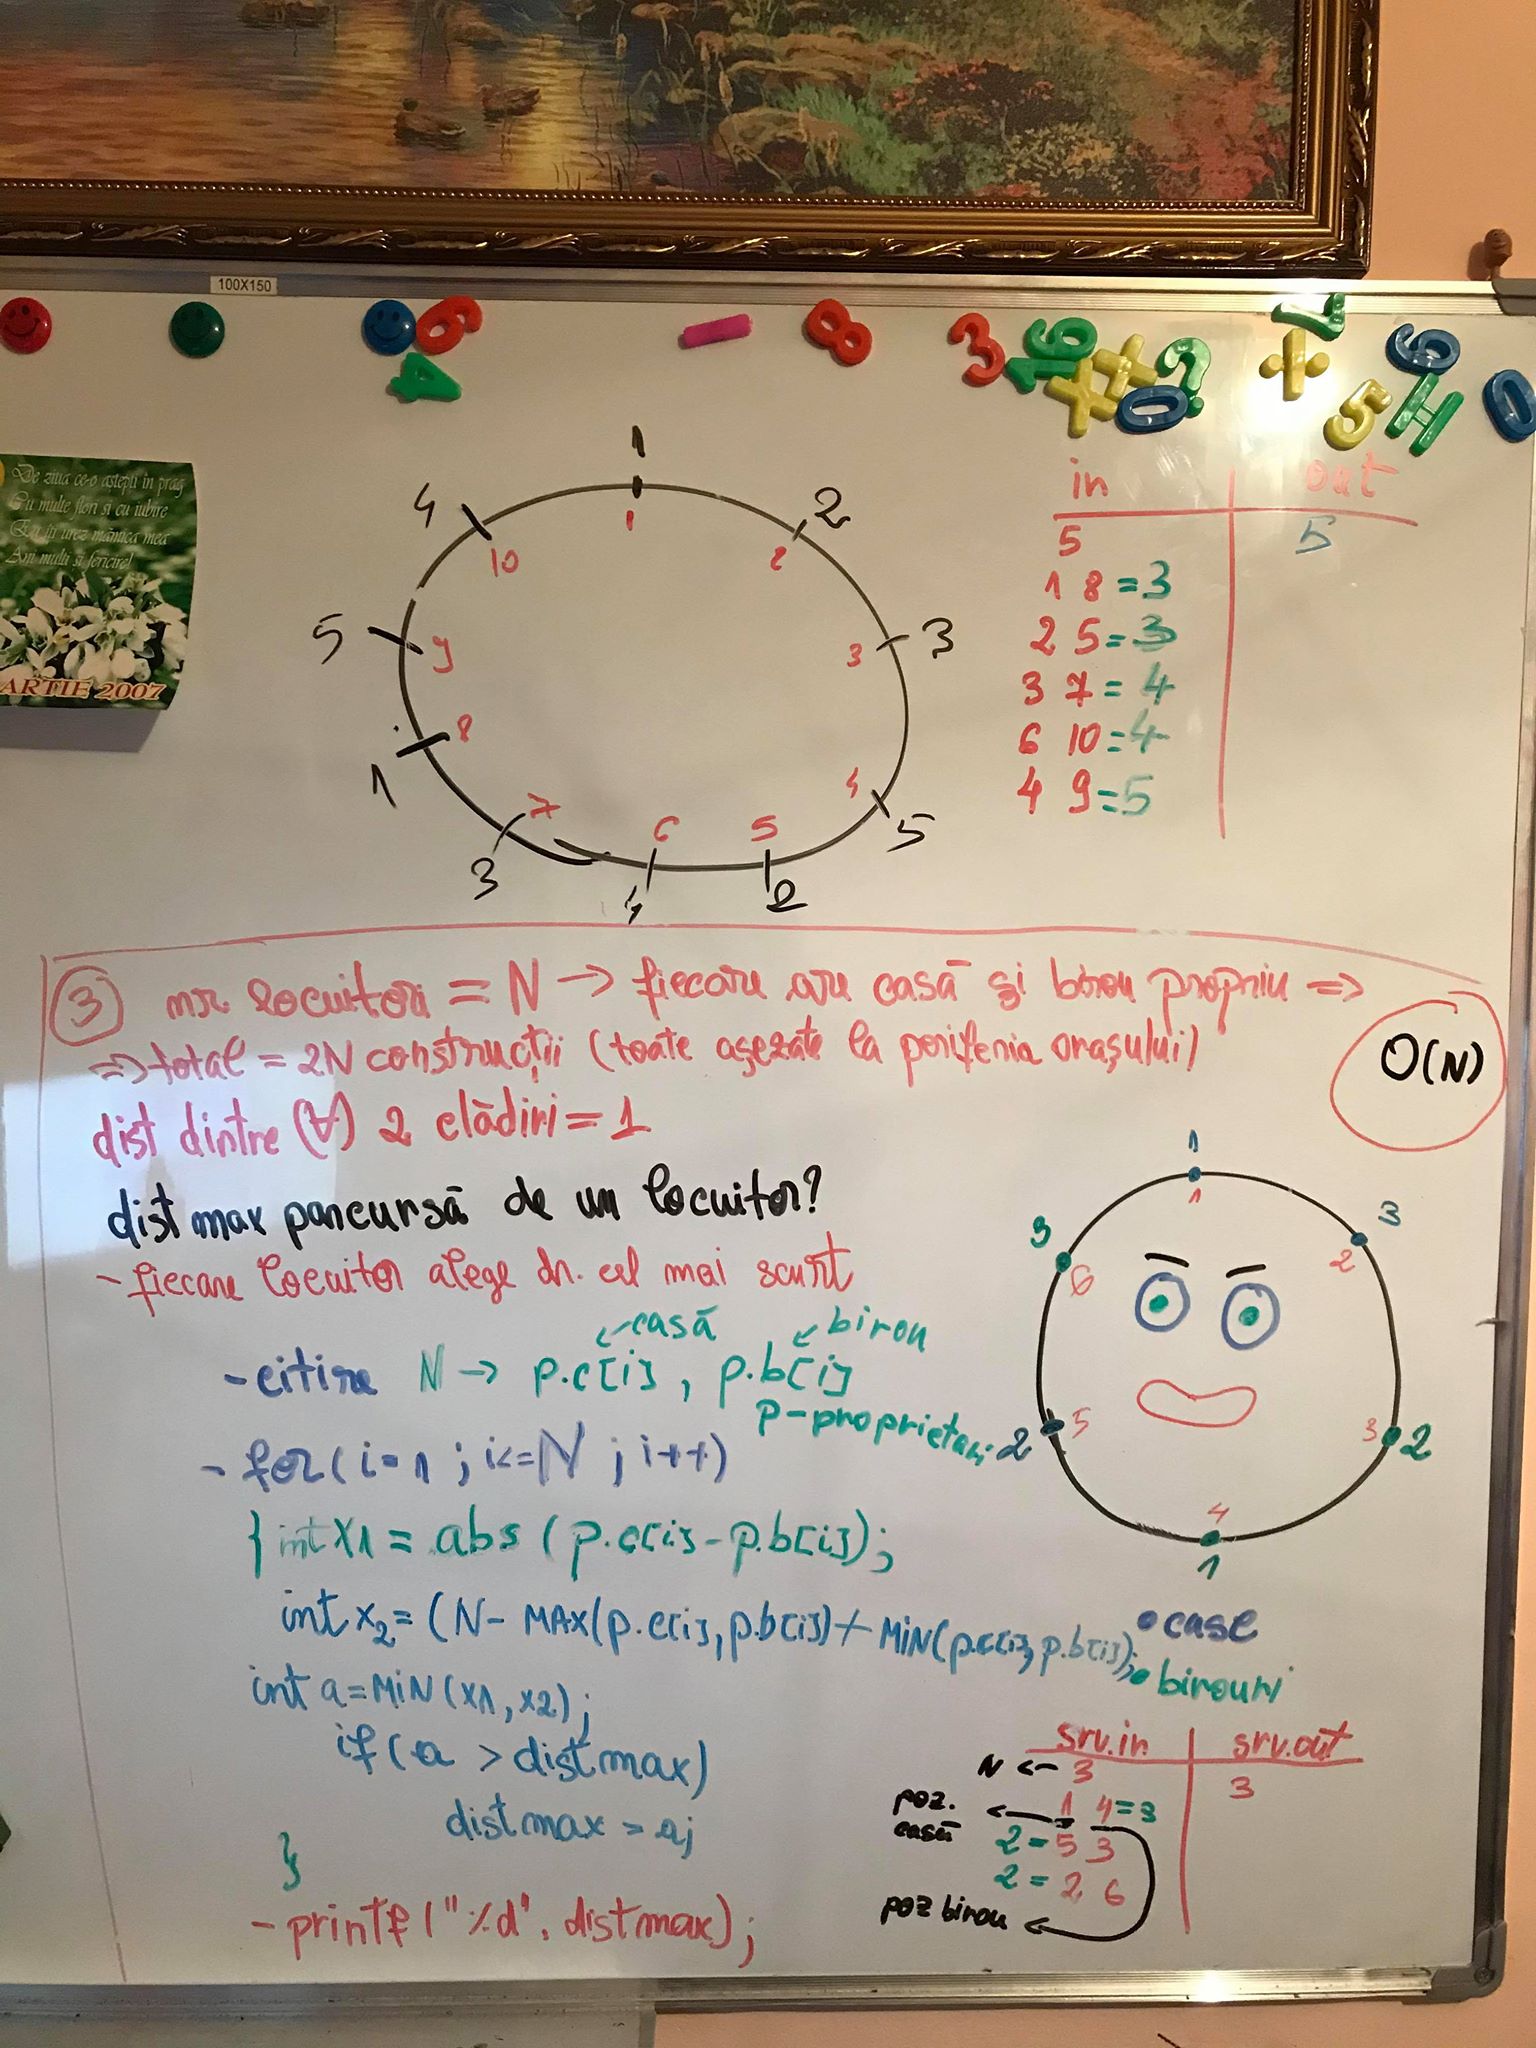 100X150
6 4 8 3 16 + x 0 ? + 7 5 6 H 0
De ziua ce-o astepti in prag
Cu multe flori si cu iubire
Eu iti urez mamica mea
Ani multi si fericire!
ARTIE 2007
1 2 3 5 2 4 3 1 5 4
1 2 3 4 5 6 7 8 9 10
in out
5 5
1 8 = 3
2 5 = 3
3 7 = 4
6 10 = 4
4 9 = 5
③ nr. locuitori = N → fiecare are casă și birou propriu =>
=> total = 2N construcții (toate așezate la periferia orașului)
O(N)
dist dintre (∀) 2 clădiri = 1
dist max parcursă de un locuitor?
- fiecare locuitor alege dr. cel mai scurt
↙casă ↙birou
- citire N → p.c[i], p.b[i]
p-proprietar
- for(i=1; i<=N; i++)
{ int x1 = abs(p.c[i]-p.b[i]);
int x2 = (N- MAX(p.c[i],p.b[i])+MIN(p.c[i],p.b[i]);
int a=MIN(x1,x2);
if(a > distmax)
distmax = a;
}
- printf("%d", distmax);
1 3 2 1 2 3
1 2 3 4 5 6
• case
• birouri
srv.in srv.out
N <- 3 3
poz. casă <- 1 4=3
2=5 3
2=2 6
poz birou <-